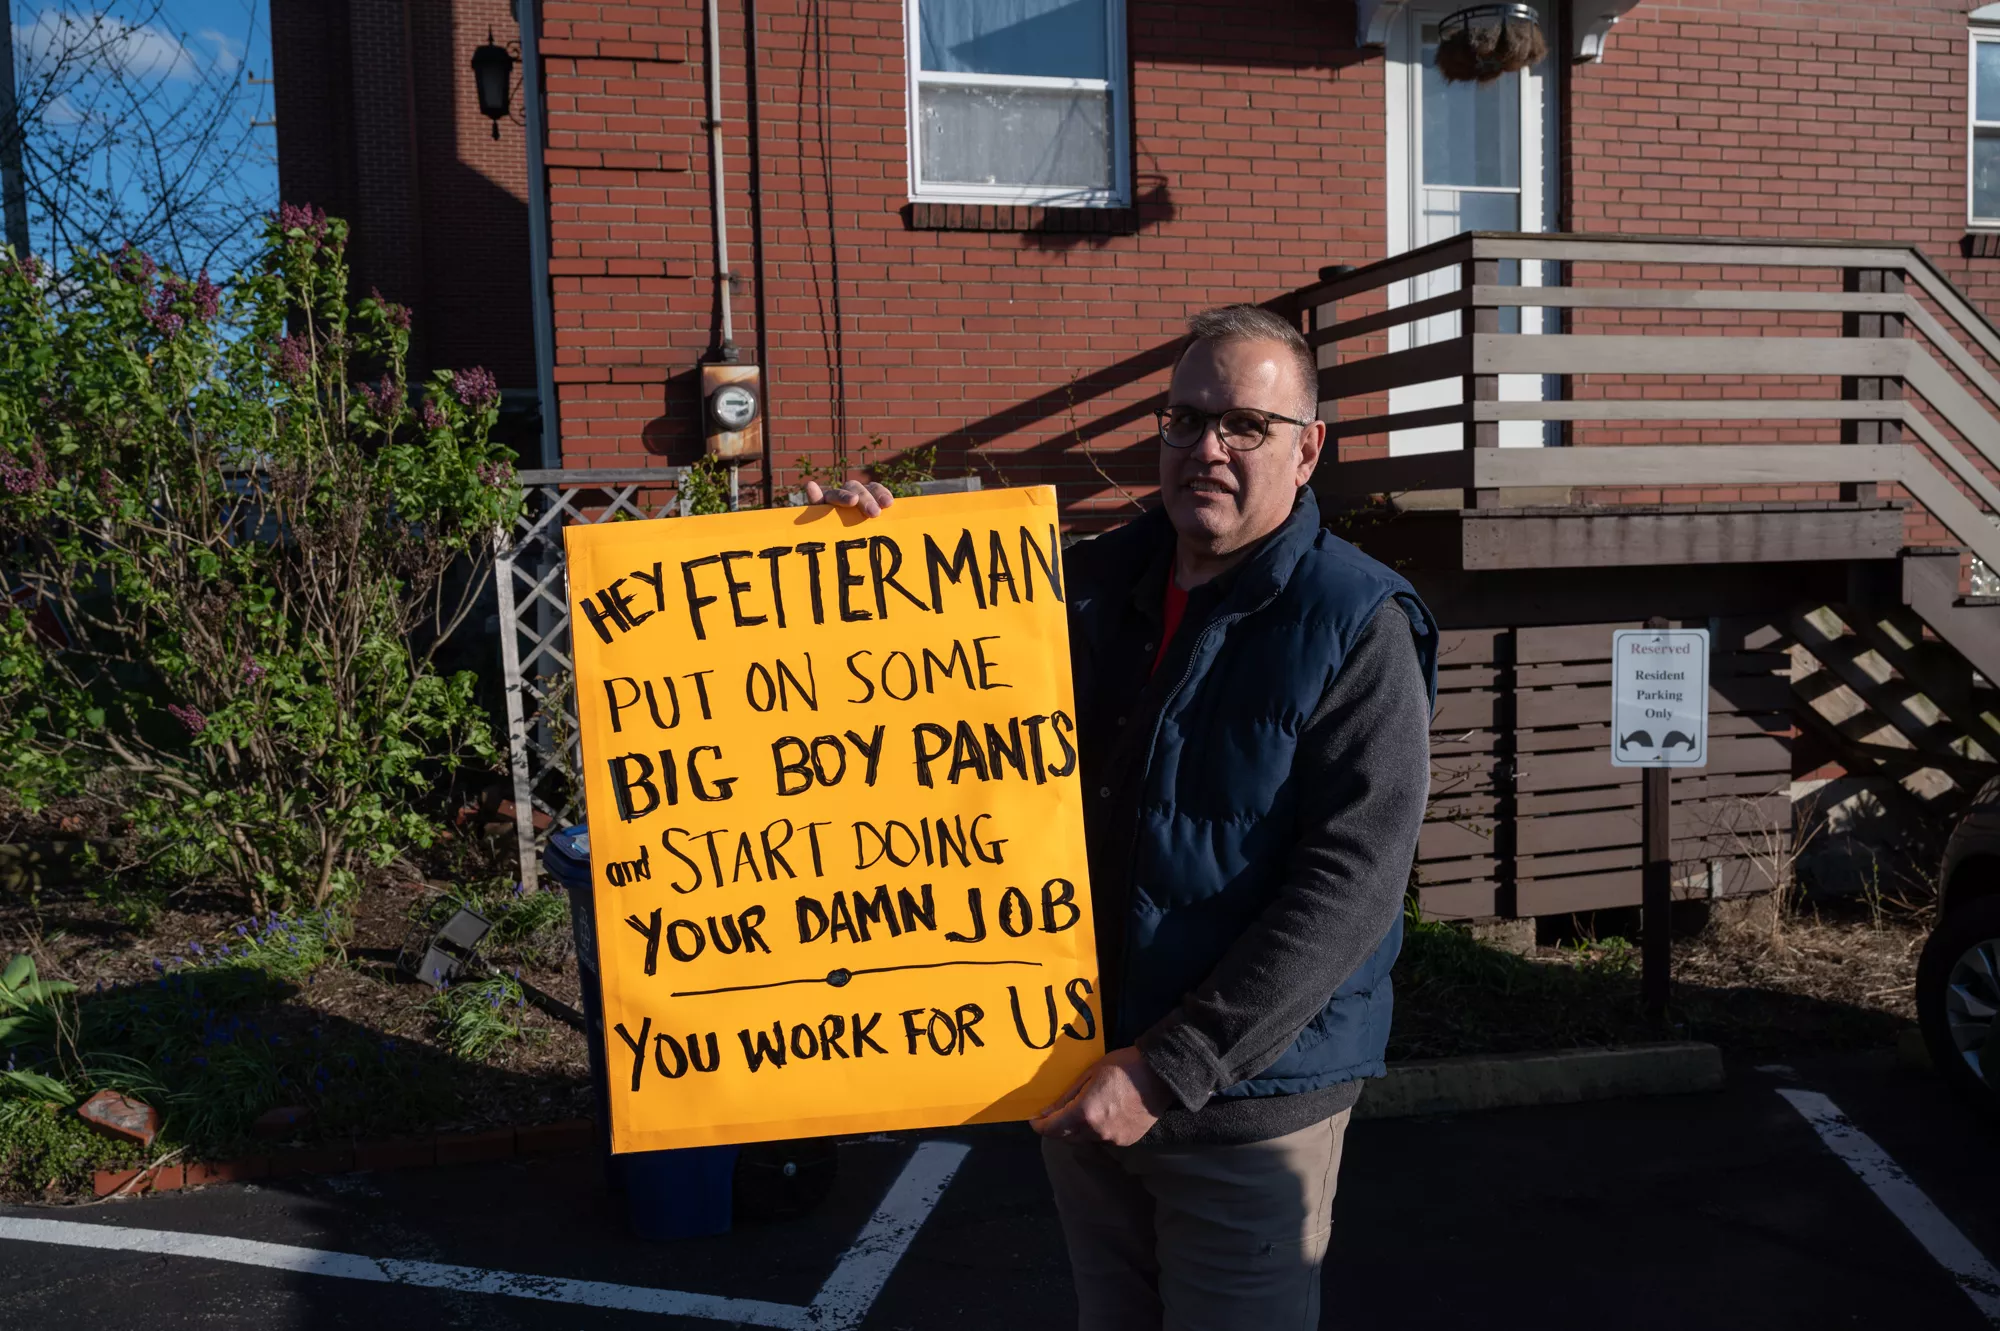 HEY FETTERMAN
PUT ON SOME
BIG BOY PANTS
and START DOING
YOUR DAMN JOB
YOU WORK FOR US
Reserved
Resident
Parking
Only